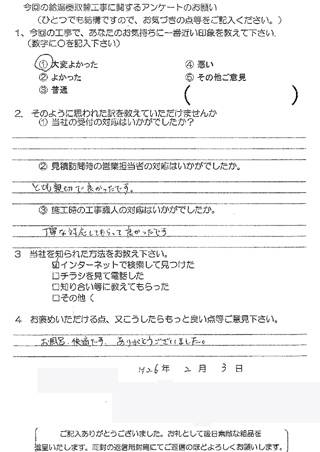 今回の給湯器取替工事に関するアンケートのお願い
(ひとつでも結構ですので、お気づきの点等をご記入ください。)
1、今回の工事で、あなたのお気持ちに一番近い印象を教えて下さい.
(数字に○を記入下さい)
① 大変よかった
④ 悪い
② よかった
⑤ その他ご意見
③ 普通
( )
2. そのように思われた訳を教えていただけませんか
① 当社の受付の対応はいかがでしたか?
② 見積訪問時の営業担当者の対応はいかがでしたか。
とても親切で良かったです。
③ 施工時の工事職人の対応はいかがでしたか。
丁寧な対応してもらって良かったです
3 当社を知られた方法をお教え下さい。
☑インターネットで検索して見つけた
□チラシを見て電話した
□知り合い等に教えてもらった
□その他 (
4 お褒めいただける点、又こうしたらもっと良い点等ご意見下さい。
お風呂、快適です、ありがとうございました。
26年 2月 3日
ご記入ありがとうございました。お礼として後日素敵な粗品を
進呈いたします。同封の返信用封筒にてご返信のほどよろしくお願いします。